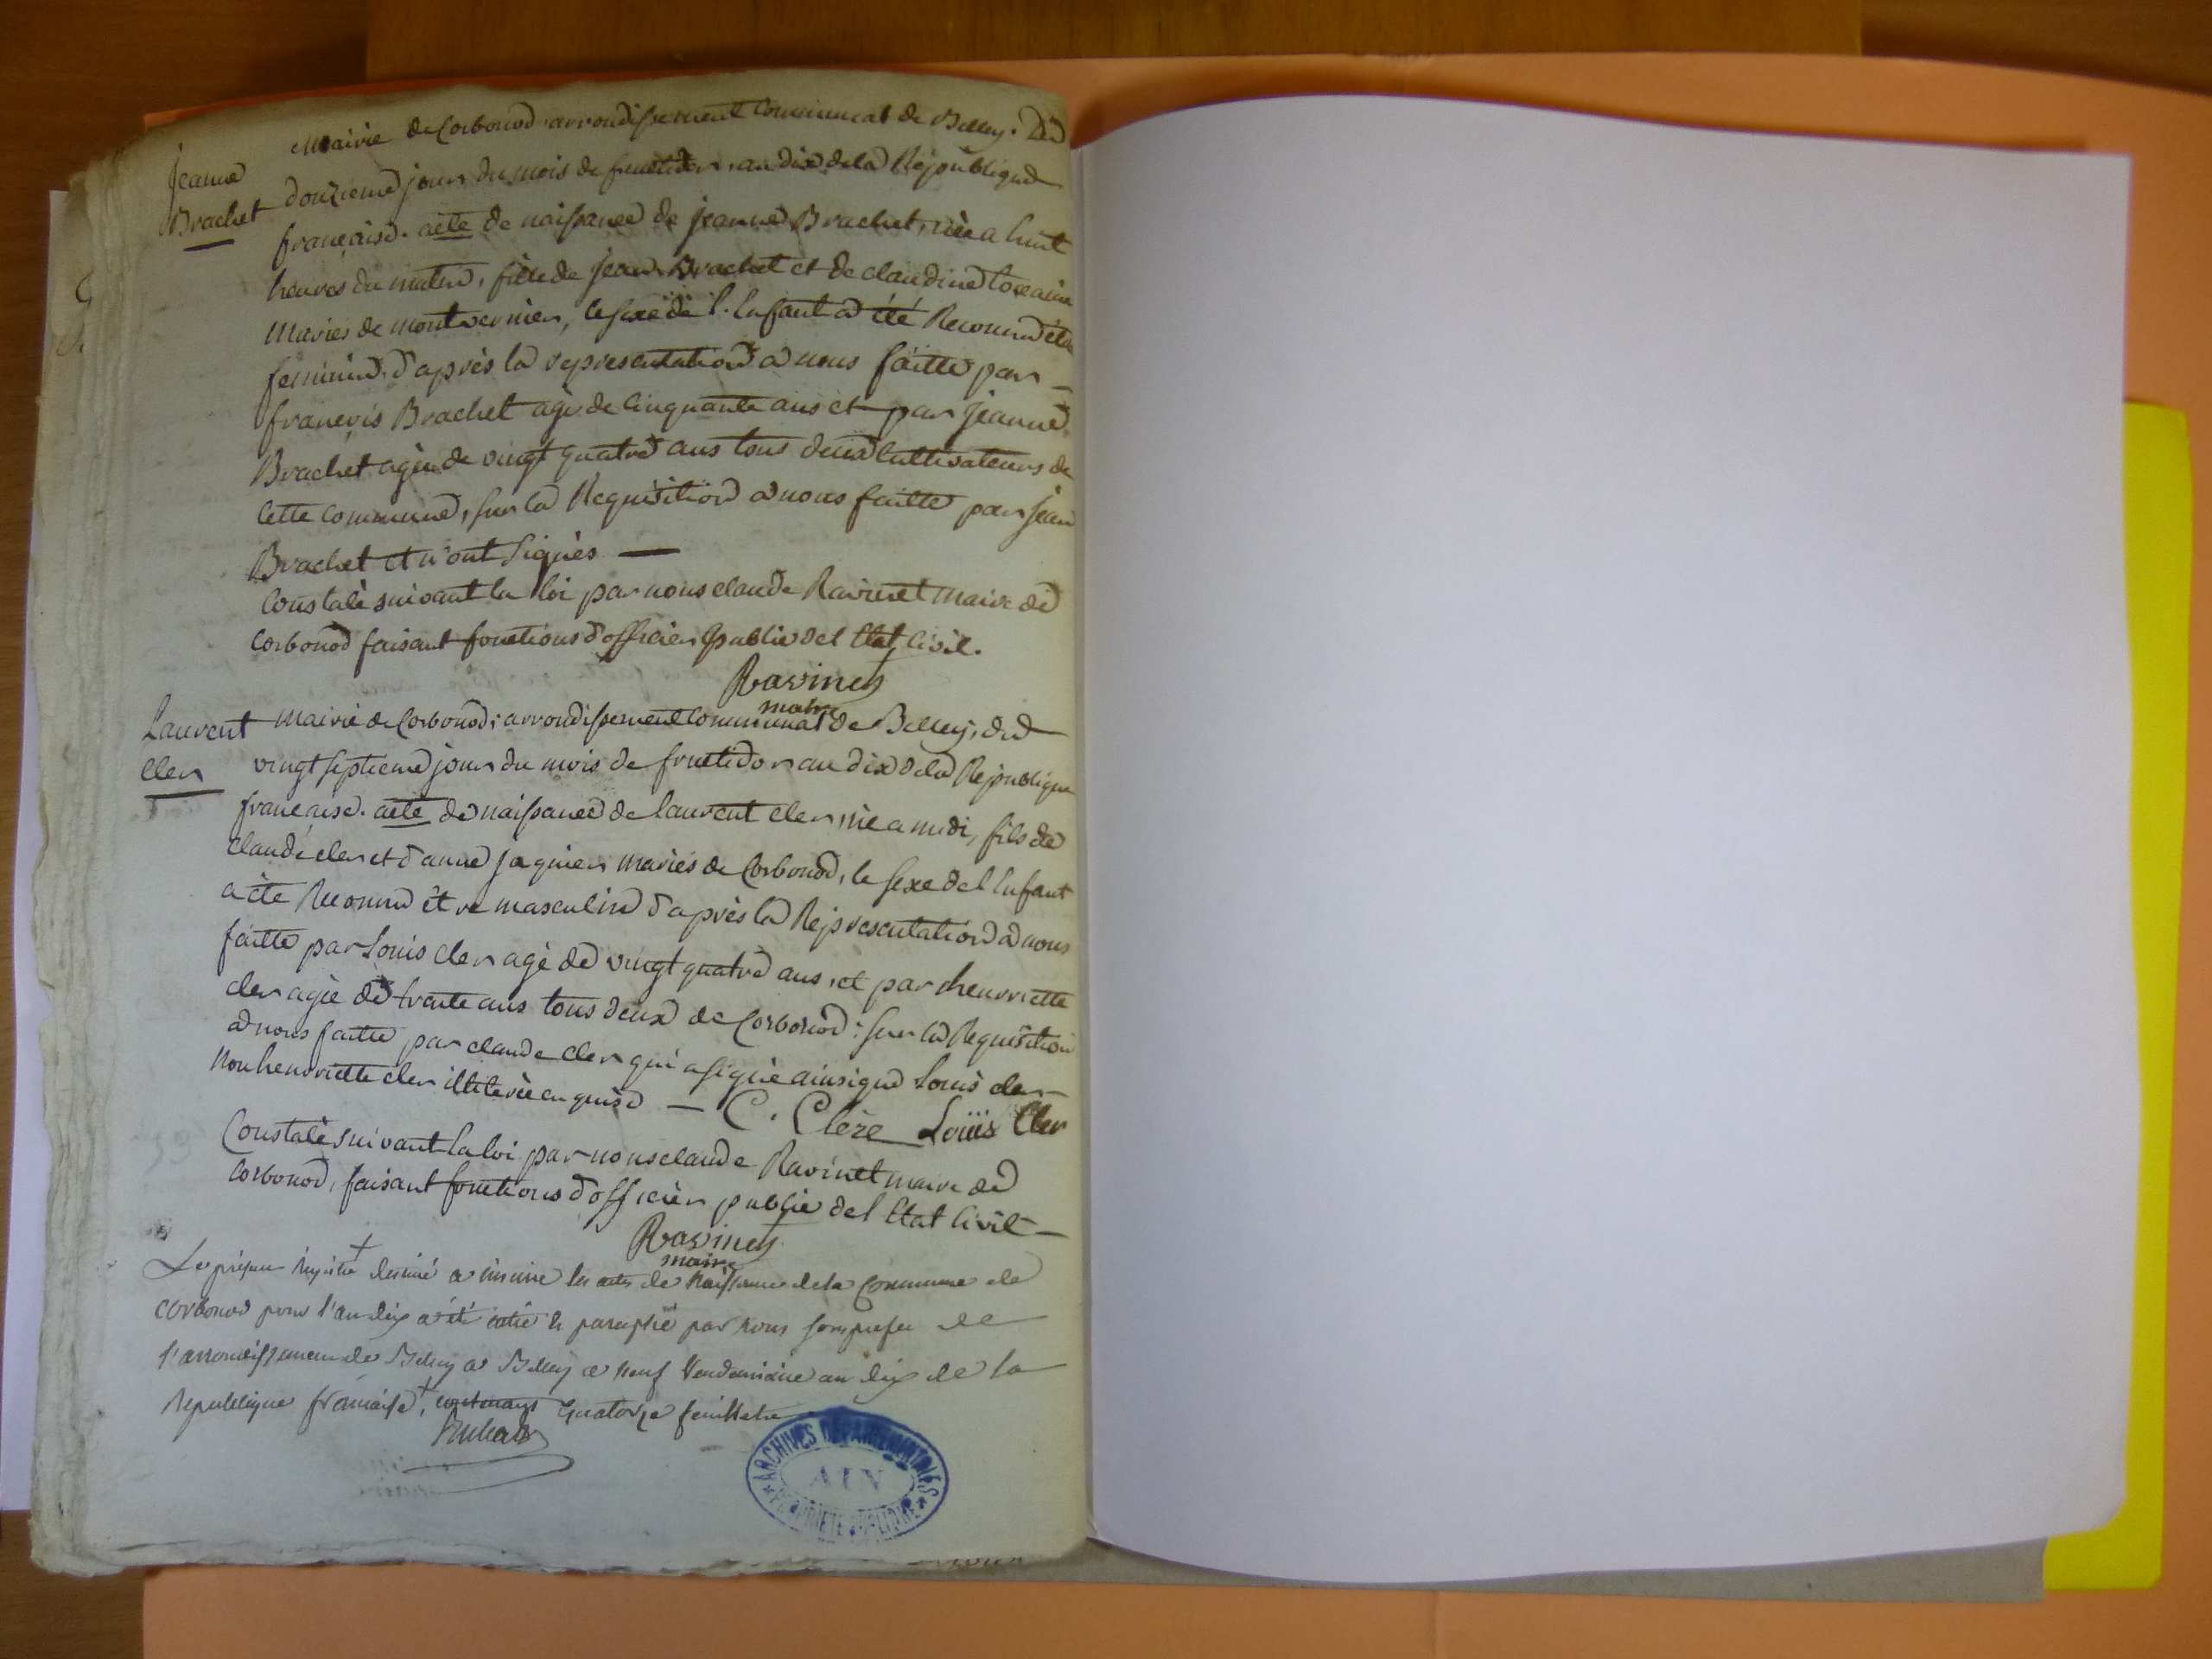 Mairie de Corbonod, arrondissement communal de Belley. Du
Jeanne
Brachet
douzieme jour du mois de fructidor, an dix de la République
française. acte de naissance de jeanne Brachet, née a huit
heures du matin, fille de jean Brachet et de claudine
Mariés de montvernier, le sexe de l'Enfant a été Reconnu être
feminin, d'après la representation a nous faitte par
françois Brachet agé de cinquante ans et par jeanne
Brachet agée de vingt quatre ans tous deux cultivateurs de
cette commune, sur la Requisition a nous faitte par jean
Brachet et n'ont signés —
Constaté suivant la loi par nous claude Ravinet maire de
Corbonod faisant fonctions d'officier public de l Etat civil.
Ravinet
maire
Laurent
cler
mairie de Corbonod, arrondissement communal de Belley, du
vingt septieme jour du mois de fructidor an dix de la République
française. acte de naissance de laurent cler, né a midi, fils de
claude cler et d'anne jaquier mariés de Corbonod, le sexe de l Enfant
a été Reconnu être masculin d'après la Representation a nous
faitte par louis cler agé de vingt quatre ans, et par henriette
cler agée de trente ans tous deux de Corbonod: sur la Requisition
a nous faitte par claude cler qui a signé ainsi que louis cler
non henriette cler illiterée enquise — C. Clere Louïs Cler
Constaté suivant la loi par nous claude Ravinet maire de
Corbonod, faisant fonctions d'officier public de l Etat civil —
Ravinet
maire
Le présent Registre + destiné a inscrire les actes de Naissance de la Commune de
Corbonod pour l'an dix a été cotté et paraphé par nous sousprefet de
l'arrondissement de Belley a Belley le neuf Vendemiaire an dix de la
Republique française, + contenant quatorze feuillets
ARCHIVES DÉPARTEMENTALES
AIN
PROPRIÉTÉ PUBLIQUE